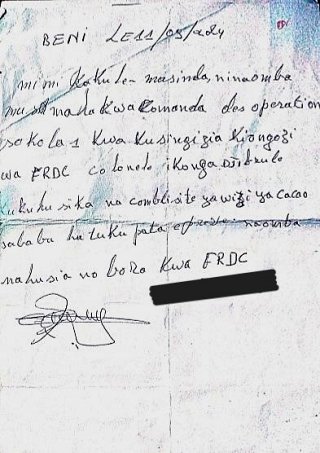 BENI LE 11/05/2024
mimi Kakule masinda, ninaomba
msamaha Kwa Comanda des operation
sokola 1 Kwa Kusingizia Kiongozi
wa FRDC colonelo iKonga Djibrulo
ukuhusika na complisite ya wizi ya cacao
sababu hatuku pata epreve. naomba
mahusiano bora Kwa FRDC